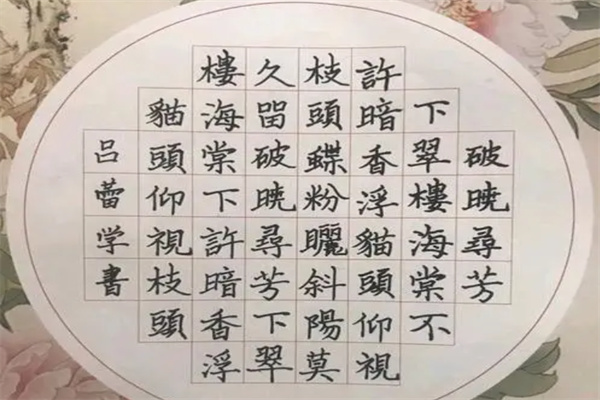 破曉尋芳
下翠樓海棠不
許暗香浮貓頭仰視
枝頭蝶粉曬斜陽莫
久留破曉尋芳下翠
樓海棠下許暗香浮
貓頭仰視枝頭
吕蕾学書